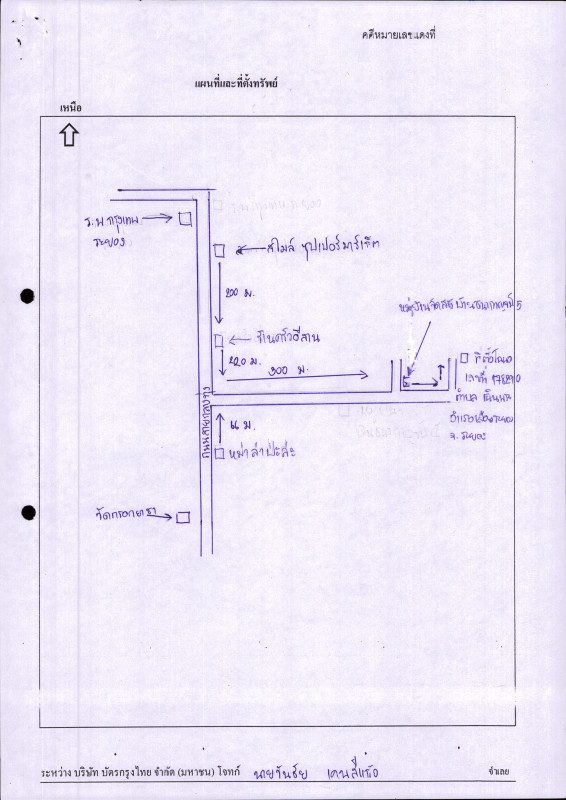 คดีหมายเลขแดงที่
แผนที่และที่ตั้งทรัพย์
เหนือ
ร.พ กรุงเทพ
ระยอง
สไมล์ ซุปเปอร์มาร์เก็ต
200 ม.
ร้านครัวอีสาน
220 ม.
900 ม.
หมู่บ้านจัดสรร
5
ที่ตั้งโฉนด
เลขที่
ตำบล เนินพระ
อำเภอเมืองระยอง
จ. ระยอง
ถนนสายกลาง
ม.
หม่าล่า
วัดกรอกยายชา
ระหว่าง บริษัท บัตรกรุงไทย จำกัด (มหาชน) โจทก์ นายวันชัย จำเลย